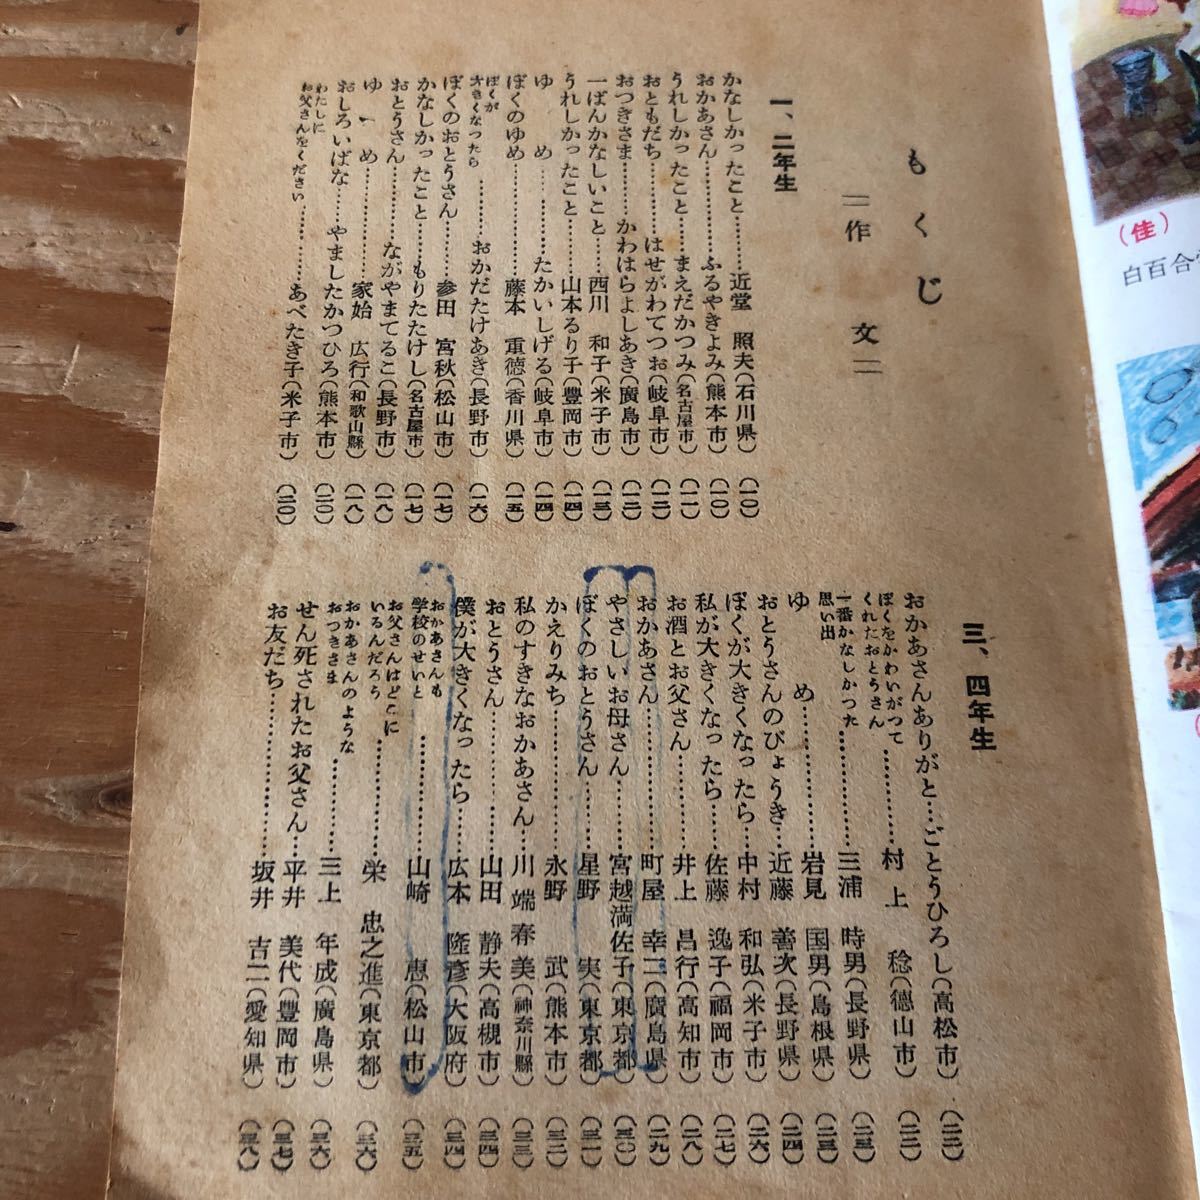 もくじ
＝作文＝
一、二年生
かなしかったこと………近堂　照夫（石川県）（一〇）
おかあさん………ふるやきよみ（熊本市）（一〇）
うれしかったこと……まえだかつみ（名古屋市）（一一）
おともだち………はせがわてつお（岐阜市）（一二）
おつきさま………かわはらよしあき（廣島市）（一二）
一ばんかなしいこと……西川　和子（米子市）（一三）
うれしかったこと………山本るり子（豊岡市）（一四）
ゆめ………たかいしげる（岐阜市）（一四）
ぼくのゆめ………藤本　重徳（香川県）（一五）
ぼくが大きくなつたら………おかだたけあき（長野市）（一六）
ぼくのおとうさん………参田　宮秋（松山市）（一七）
かなしかったこと……もりたたけし（名古屋市）（一七）
おとうさん………ながやまてるこ（長野市）（一八）
ゆーめ………家始　広行（和歌山縣）（一八）
おしろいばな……やましたかつひろ（熊本市）（二〇）
わたしにお父さんをください………あべたき子（米子市）（二〇）
三、四年生
おかあさんありがと…ごとうひろし（高松市）（二二）
ぼくをかわいがつてくれたおとうさん………村上　稔（徳山市）（二二）
一番かなしかつた思い出………三浦　時男（長野県）（二三）
ゆめ………岩見　国男（島根県）（二三）
おとうさんのびょうき……近藤　善次（長野県）（二四）
ぼくが大きくなったら……中村　和弘（米子市）（二六）
私が大きくなったら……佐藤　逸子（福岡市）（二七）
お酒とお父さん………井上　昌行（高知市）（二八）
おかあさん………町屋　幸二（廣島県）（二九）
やさしいお母さん………宮越満佐子（東京都）（三〇）
ぼくのおとうさん………星野　実（東京都）（三一）
かえりみち………永野　武（熊本市）（三二）
私のすきなおかあさん……川端春美（神奈川縣）（三三）
おとうさん………山田　静夫（高槻市）（三四）
僕が大きくなったら……広本　隆彦（大阪府）（三四）
おかあさんも学校のせいと………山崎　恵（松山市）（三五）
お父さんはどこにいるんだろう………栄　忠之進（東京都）（三六）
おかあさんのようなおつきさま………三上　年成（廣島県）（三六）
せん死されたお父さん……平井　美代（豊岡市）（三七）
お友だち………坂井　吉二（愛知県）（三八）
（佳）
白百合